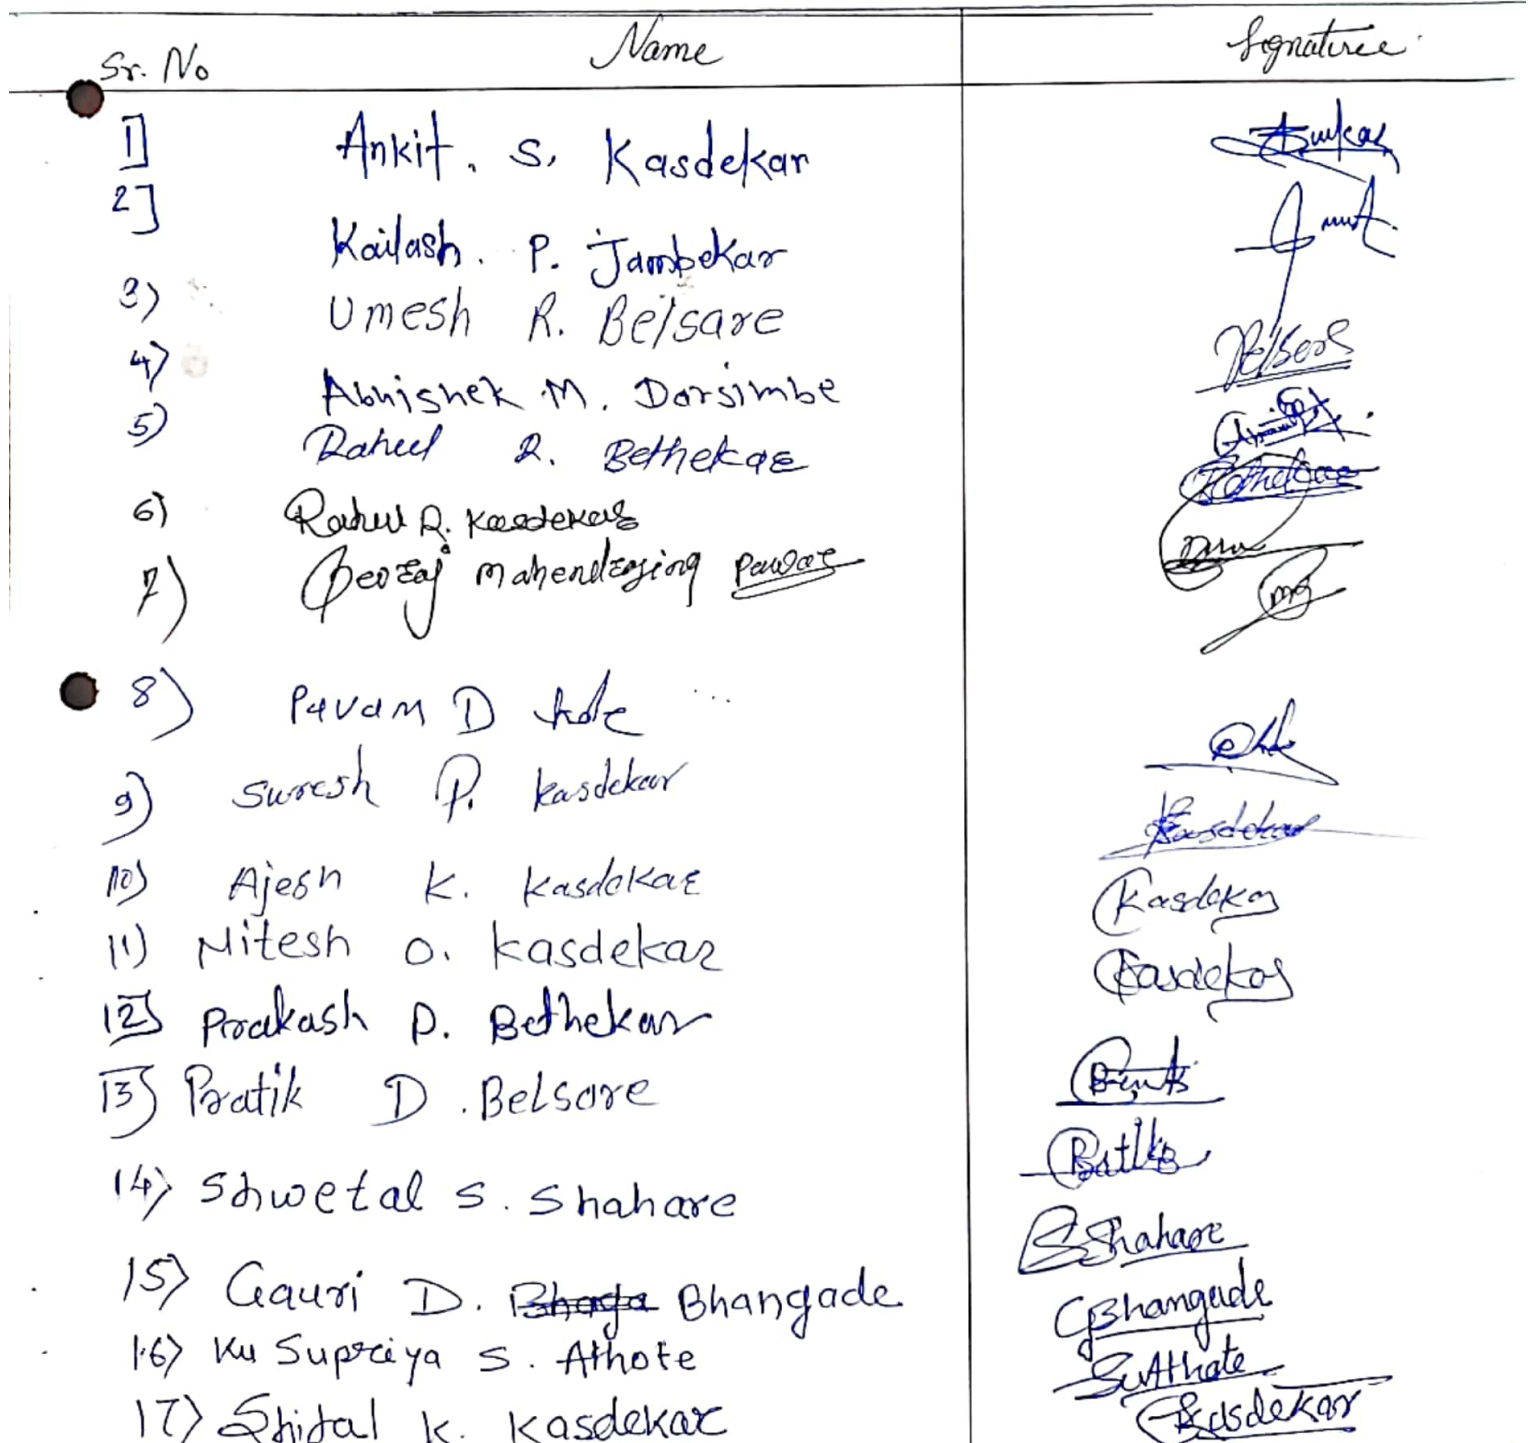 Sr. No Name Signature
1] Ankit. S. Kasdekar
2] Kailash. P. Jambekar
3) Umesh R. Belsare Belsare
4) Abhishek M. Darsimbe
5) Rahul R. Bethekar Bethekar
6) Rahul R. Kasdekar
7) Mahendrasing Pawar
8) Pavan D
9) Suresh P. Kasdekar Kasdekar
10) Ajesh K. Kasdekar Kasdekar
11) Nitesh O. Kasdekar Kasdekar
12] Prakash P. Bethekar
13] Pratik D. Belsare
14) Shwetal S. Shahare SShahare
15) Gauri D. Bhaga Bhangade GBhangade
16) Ku Supriya S. Athote SuAthote
17) Shital K. Kasdekar Kasdekar